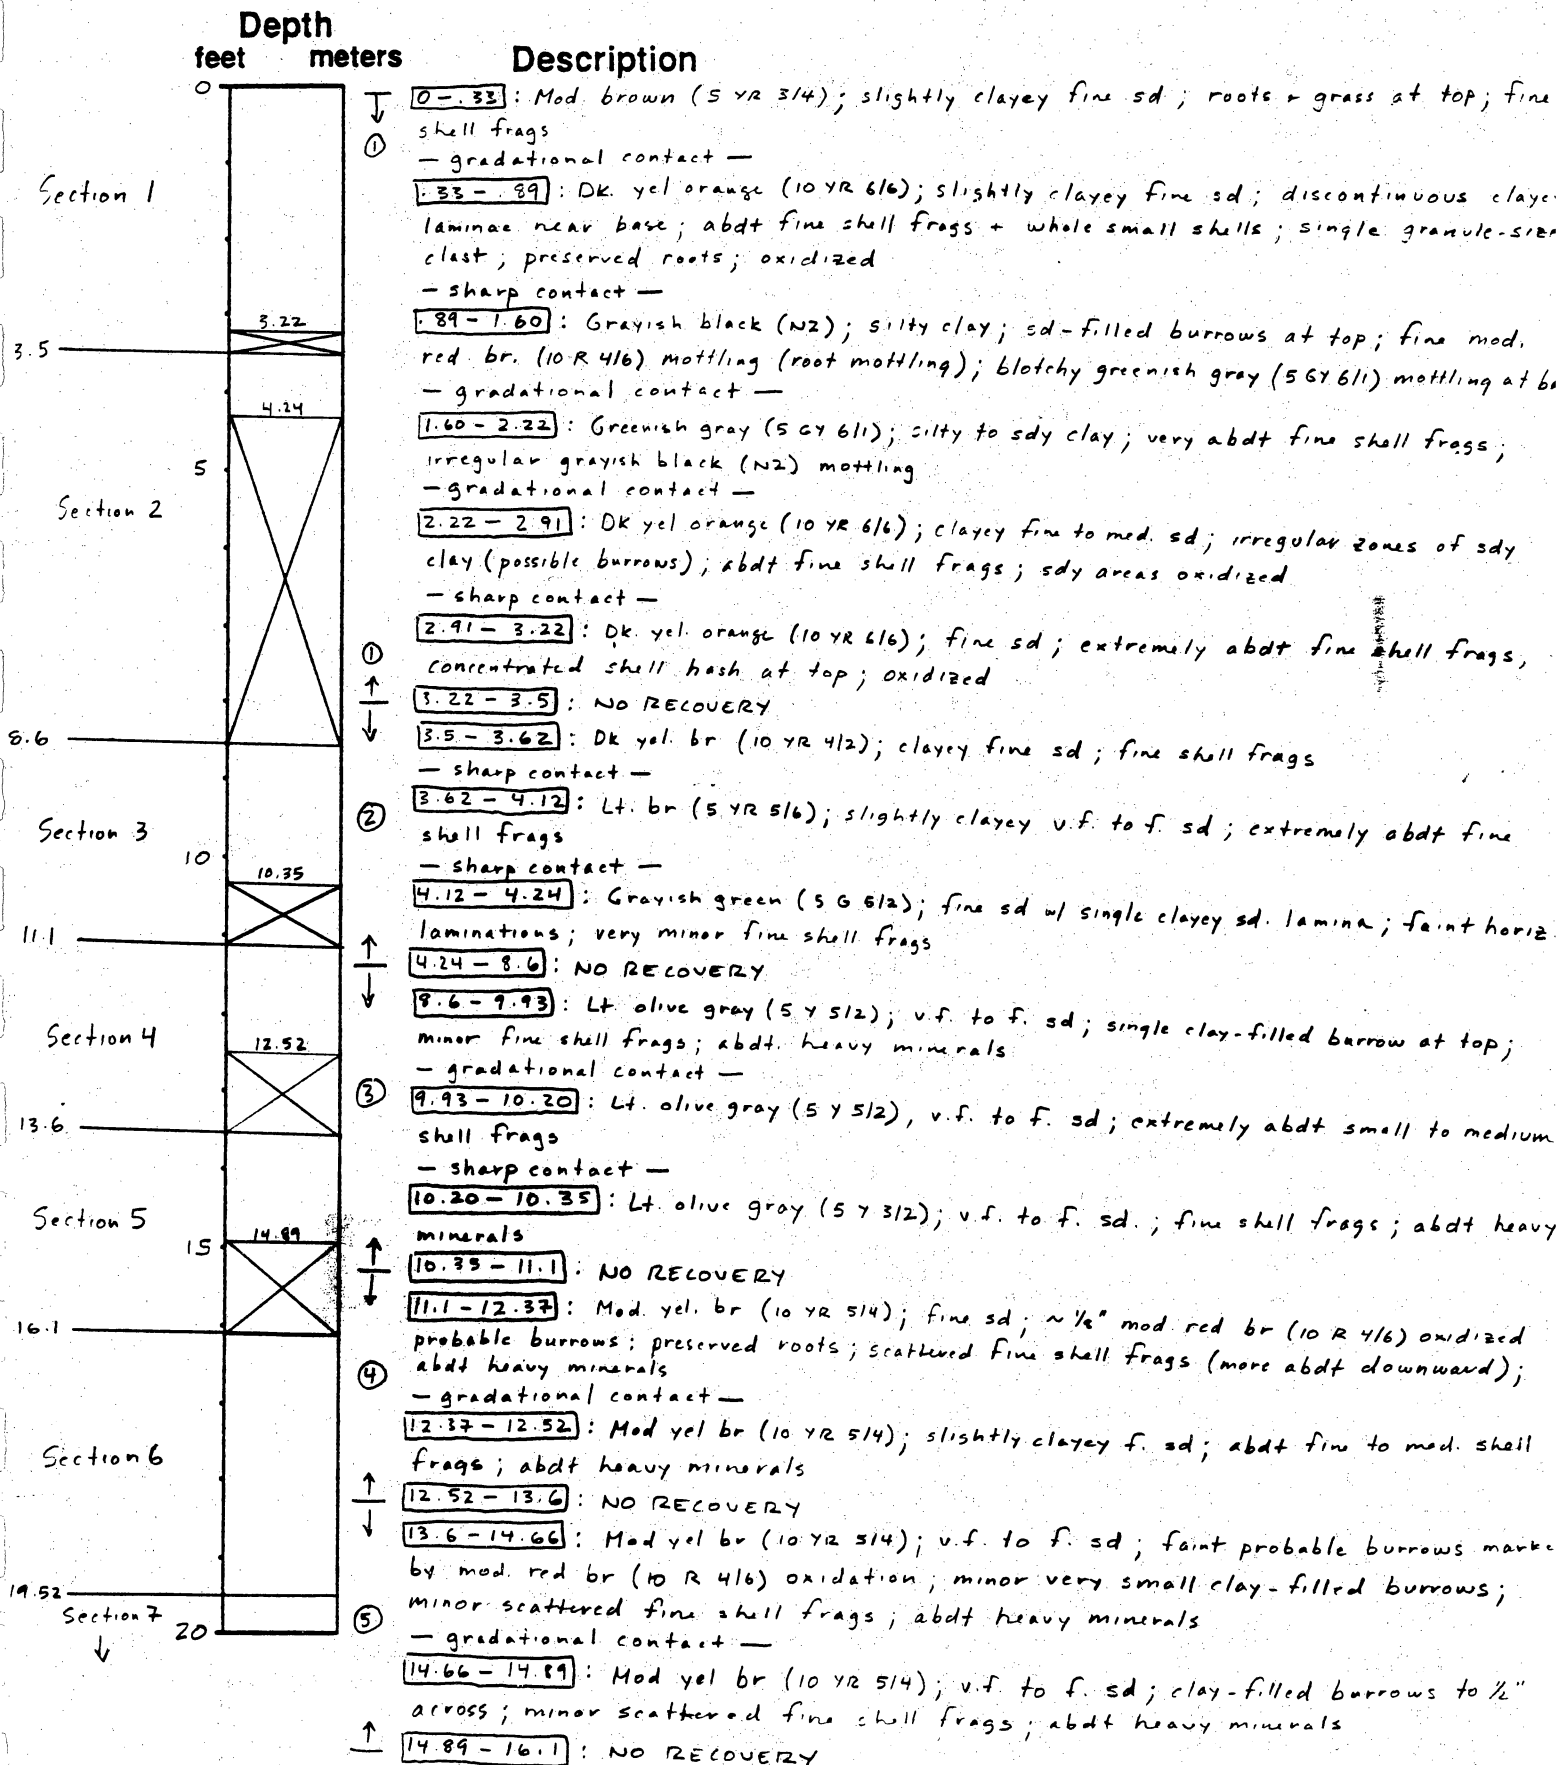 Depth
feet meters Description
0
0 - .33 : Mod. brown (5 YR 3/4); slightly clayey fine sd; roots + grass at top; fine
shell frags
①
— gradational contact —
Section 1
.33 - .89 : Dk. yel orange (10 YR 6/6); slightly clayey fine sd; discontinuous claye
laminae near base; abdt fine shell frags + whole small shells; single granule-size
clast; preserved roots; oxidized
— sharp contact —
3.22
.89 - 1.60 : Grayish black (N2); silty clay; sd-filled burrows at top; fine mod.
3.5
red br. (10 R 4/6) mottling (root mottling); blotchy greenish gray (5 GY 6/1) mottling at ba
— gradational contact —
4.24
1.60 - 2.22 : Greenish gray (5 GY 6/1); silty to sdy clay; very abdt fine shell frags;
irregular grayish black (N2) mottling
5
— gradational contact —
Section 2
2.22 - 2.91 : Dk yel orange (10 YR 6/6); clayey fine to med. sd; irregular zones of sdy
clay (possible burrows); abdt fine shell frags; sdy areas oxidized
— sharp contact —
2.91 - 3.22 : Dk. yel. orange (10 YR 6/6); fine sd; extremely abdt fine shell frags,
①
concentrated shell hash at top; oxidized
3.22 - 3.5 : NO RECOVERY
8.6
3.5 - 3.62 : Dk yel. br (10 YR 4/2); clayey fine sd; fine shell frags
— sharp contact —
②
3.62 - 4.12 : Lt. br (5 YR 5/6); slightly clayey v.f. to f. sd; extremely abdt fine
Section 3
shell frags
10
— sharp contact —
10.35
4.12 - 4.24 : Grayish green (5 G 5/2); fine sd w/ single clayey sd. lamina; faint horiz.
11.1
laminations; very minor fine shell frags
4.24 - 8.6 : NO RECOVERY
8.6 - 9.93 : Lt. olive gray (5 Y 5/2); v.f. to f. sd; single clay-filled burrow at top;
Section 4
12.52
minor fine shell frags; abdt. heavy minerals
— gradational contact —
③
9.93 - 10.20 : Lt. olive gray (5 Y 5/2), v.f. to f. sd; extremely abdt small to medium
13.6
shell frags
— sharp contact —
Section 5
10.20 - 10.35 : Lt. olive gray (5 Y 3/2); v.f. to f. sd.; fine shell frags; abdt heavy
14.89
minerals
15
10.35 - 11.1 : NO RECOVERY
11.1 - 12.37 : Mod. yel. br (10 YR 5/4); fine sd; ~ 1/2" mod red br (10 R 4/6) oxidized
16.1
probable burrows; preserved roots; scattered fine shell frags (more abdt downward);
④
abdt heavy minerals
— gradational contact —
12.37 - 12.52 : Mod yel br (10 YR 5/4); slightly clayey f. sd; abdt fine to med. shell
Section 6
frags; abdt heavy minerals
12.52 - 13.6 : NO RECOVERY
13.6 - 14.66 : Mod yel br (10 YR 5/4); v.f. to f. sd; faint probable burrows marke
by mod. red br (10 R 4/6) oxidation; minor very small clay-filled burrows;
19.52
Section 7
minor scattered fine shell frags; abdt heavy minerals
⑤
20
— gradational contact —
14.66 - 14.89 : Mod yel br (10 YR 5/4); v.f. to f. sd; clay-filled burrows to 1/2"
across; minor scattered fine shell frags; abdt heavy minerals
14.89 - 16.1 : NO RECOVERY